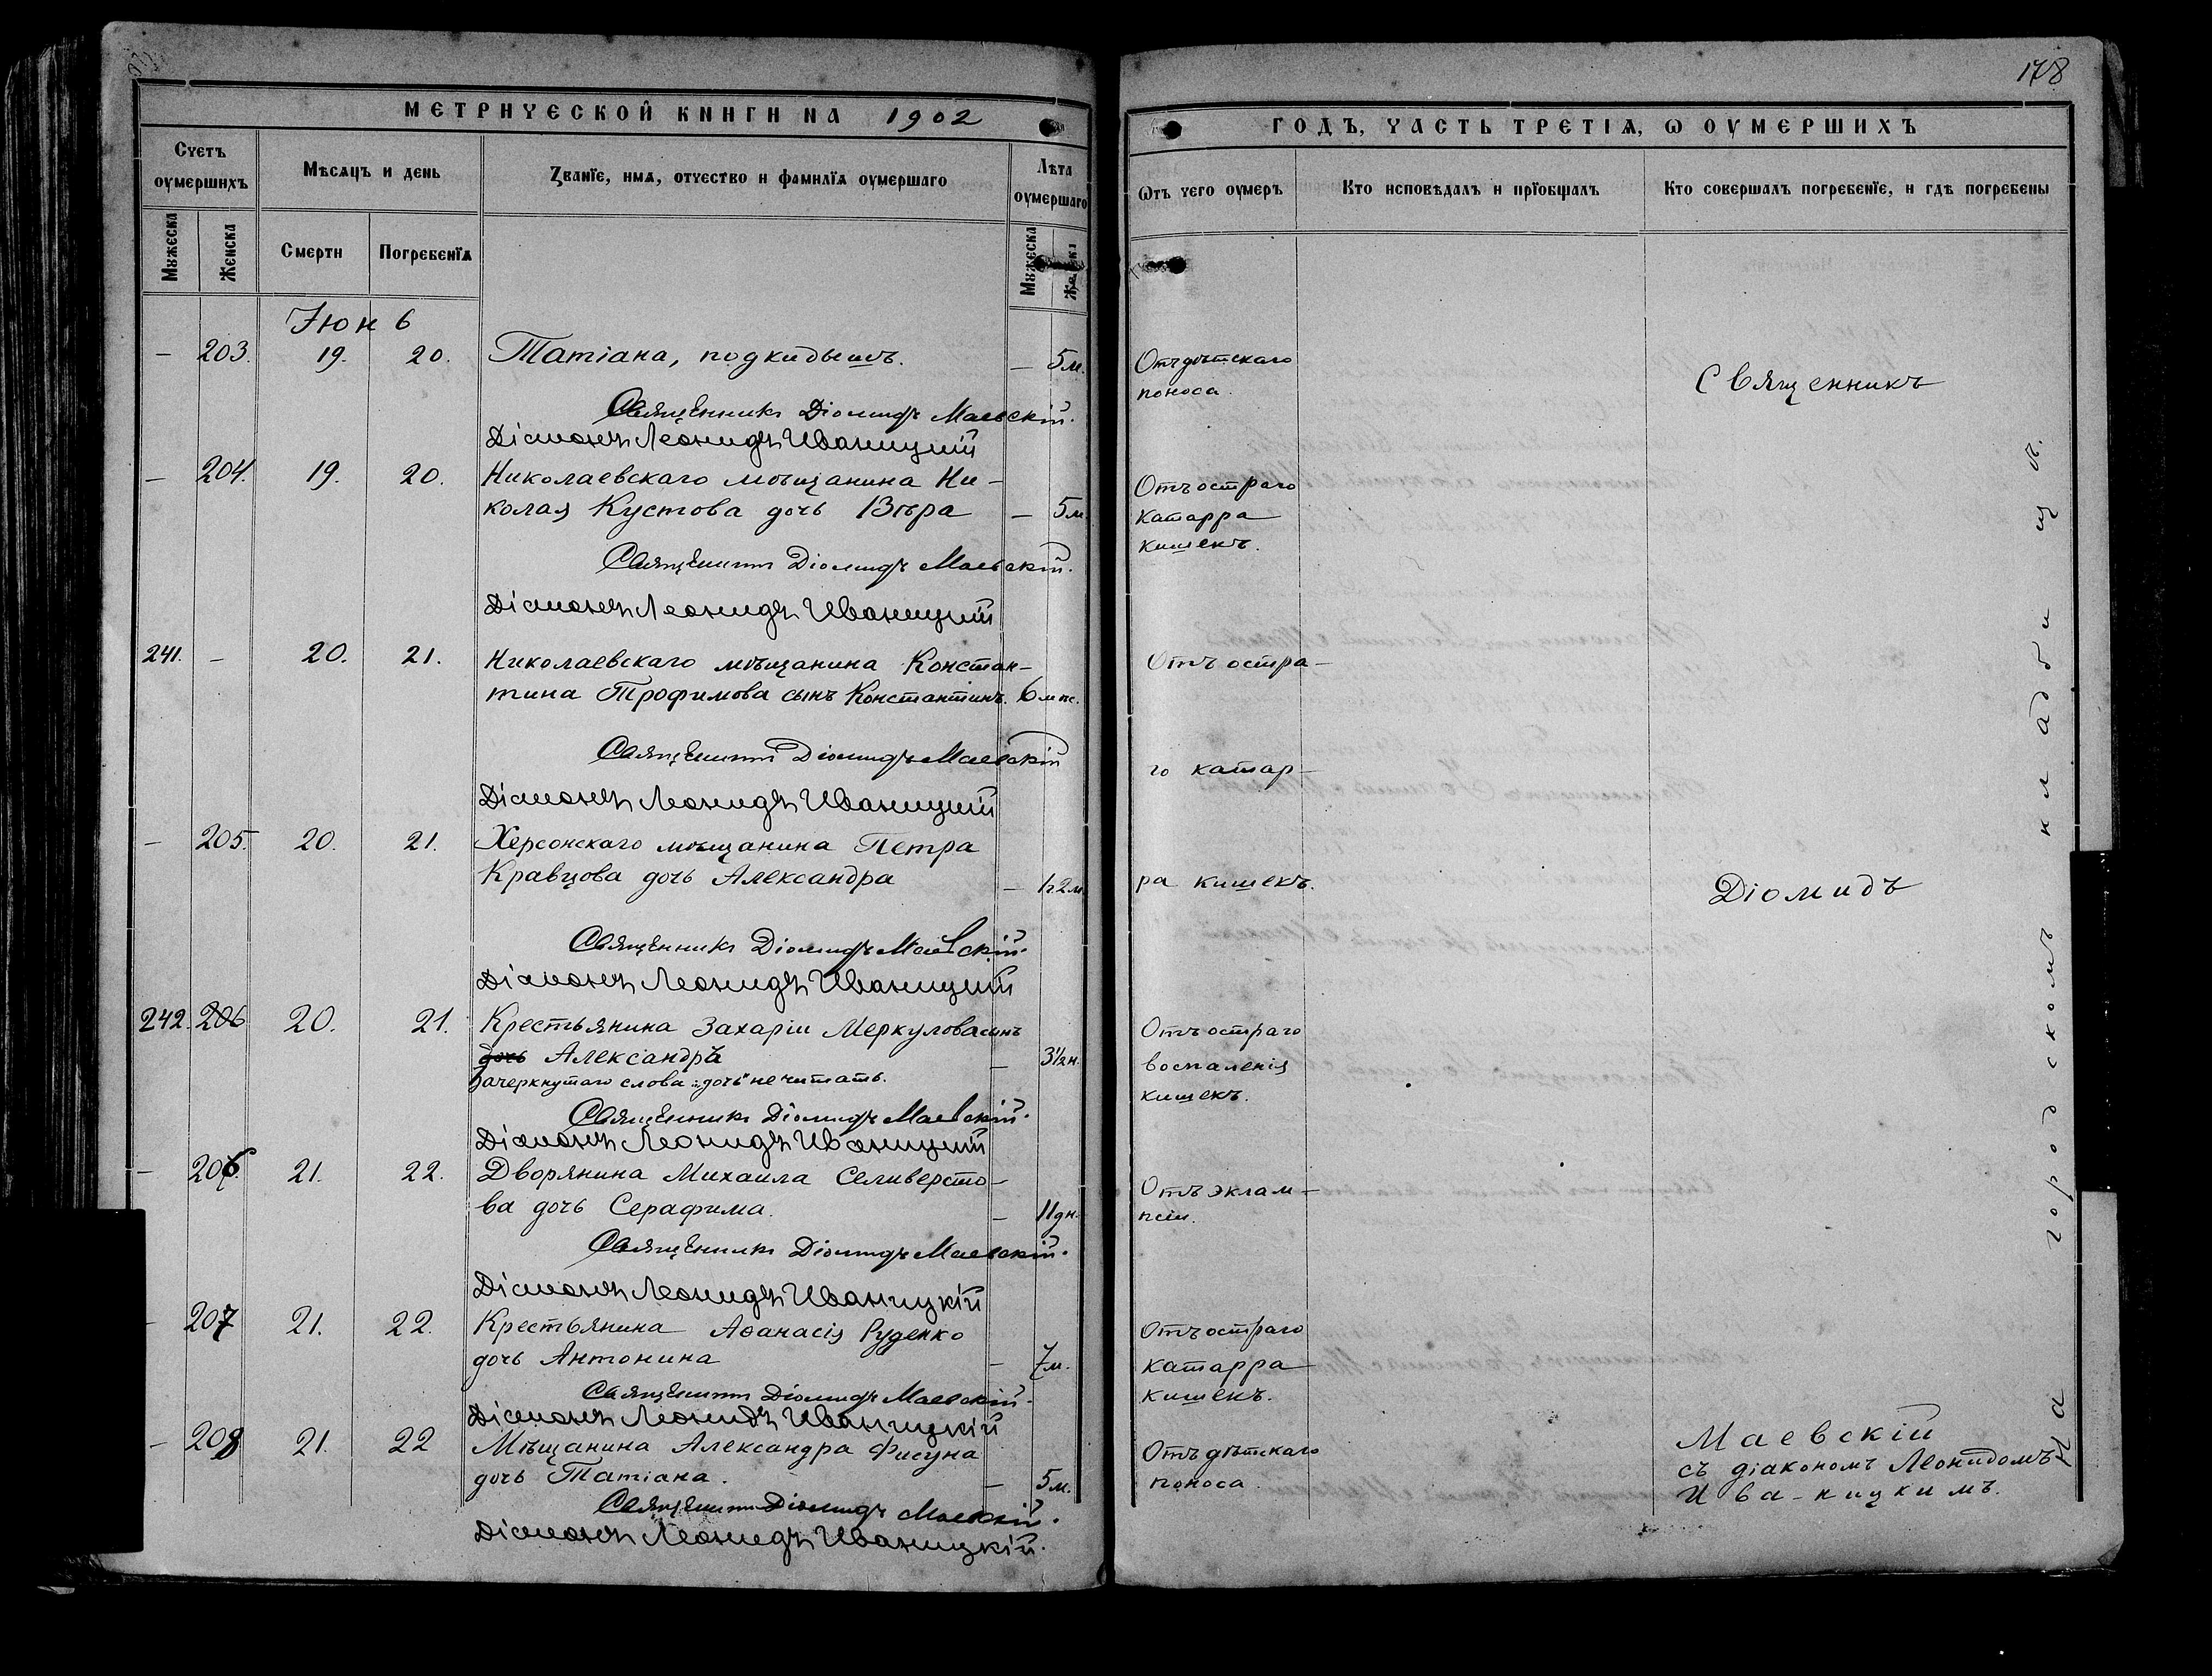 МЕТРИЧЕСКОЙ КНИГИ НА 1902
Счетъ оумершихъ
Мѣсяцъ и день
Званїе, имя, отчество и фамилїя оумершаго
Лѣта оумершаго
Мужеска
Женска
Смерти
Погребенїя
Мужеска
Іюнь
— 203. 19. 20. Татіана, подкидышъ. — 5 м.
Священникъ Діомидъ Маевскій.
Діаконъ Леонидъ Иваницкій
— 204. 19. 20. Николаевскаго мѣщанина Ни-
колая Кустова дочь Вѣра — 5 м.
Священникъ Діомидъ Маевскій.
Діаконъ Леонидъ Иваницкій
241. — 20. 21. Николаевскаго мѣщанина Констан-
тина Трофимова сынъ Константинъ. 6 мѣс.
Священникъ Діомидъ Маевскій
Діаконъ Леонидъ Иваницкій
— 205. 20. 21. Херсонскаго мѣщанина Петра
Кравцова дочь Александра — 1 г. 2 м.
Священникъ Діомидъ Маевскій.
Діаконъ Леонидъ Иваницкій
242. 206 20. 21. Крестьянина Захаріи Меркулова сынъ
дочь Александръ — 3½ н.
Зачеркнутаго слова: „дочь" не читать.
Священникъ Діомидъ Маевскій.
Діаконъ Леонидъ Иваницкій
— 206. 21. 22. Дворянина Михаила Селиверсто-
ва дочь Серафима. — 11 дн.
Священникъ Діомидъ Маевскій.
Діаконъ Леонидъ Иваницкій
— 207 21. 22. Крестьянина Аѳанасія Руденко
дочь Антонина — 7 м.
Священникъ Діомидъ Маевскій.
Діаконъ Леонидъ Иваницкій
— 208 21. 22 Мѣщанина Александра Фисуна
дочь Татіана. — 5 м.
Священникъ Діомидъ Маевскій.
Діаконъ Леонидъ Иваницкій.
178
ГОДЪ, ЧАСТЬ ТРЕТІЯ, Ѡ ОУМЕРШИХЪ
Ѿтъ чего оумеръ
Кто исповѣдалъ и прїобщалъ
Кто совершалъ погребенїе, и гдѣ погребены
Отъ дѣтскаго
поноса.
Отъ остраго
катарра
кишекъ.
Отъ остра-
го катар-
ра кишекъ.
Отъ остраго
воспаленія
кишекъ.
Отъ эклам-
псіи.
Отъ остраго
катарра
кишекъ.
Отъ дѣтскаго
поноса.
Священникъ
Діомидъ
Маевскій
съ діакономъ Леонидомъ
Ива-ницкимъ.
На городскомъ кладбищѣ.